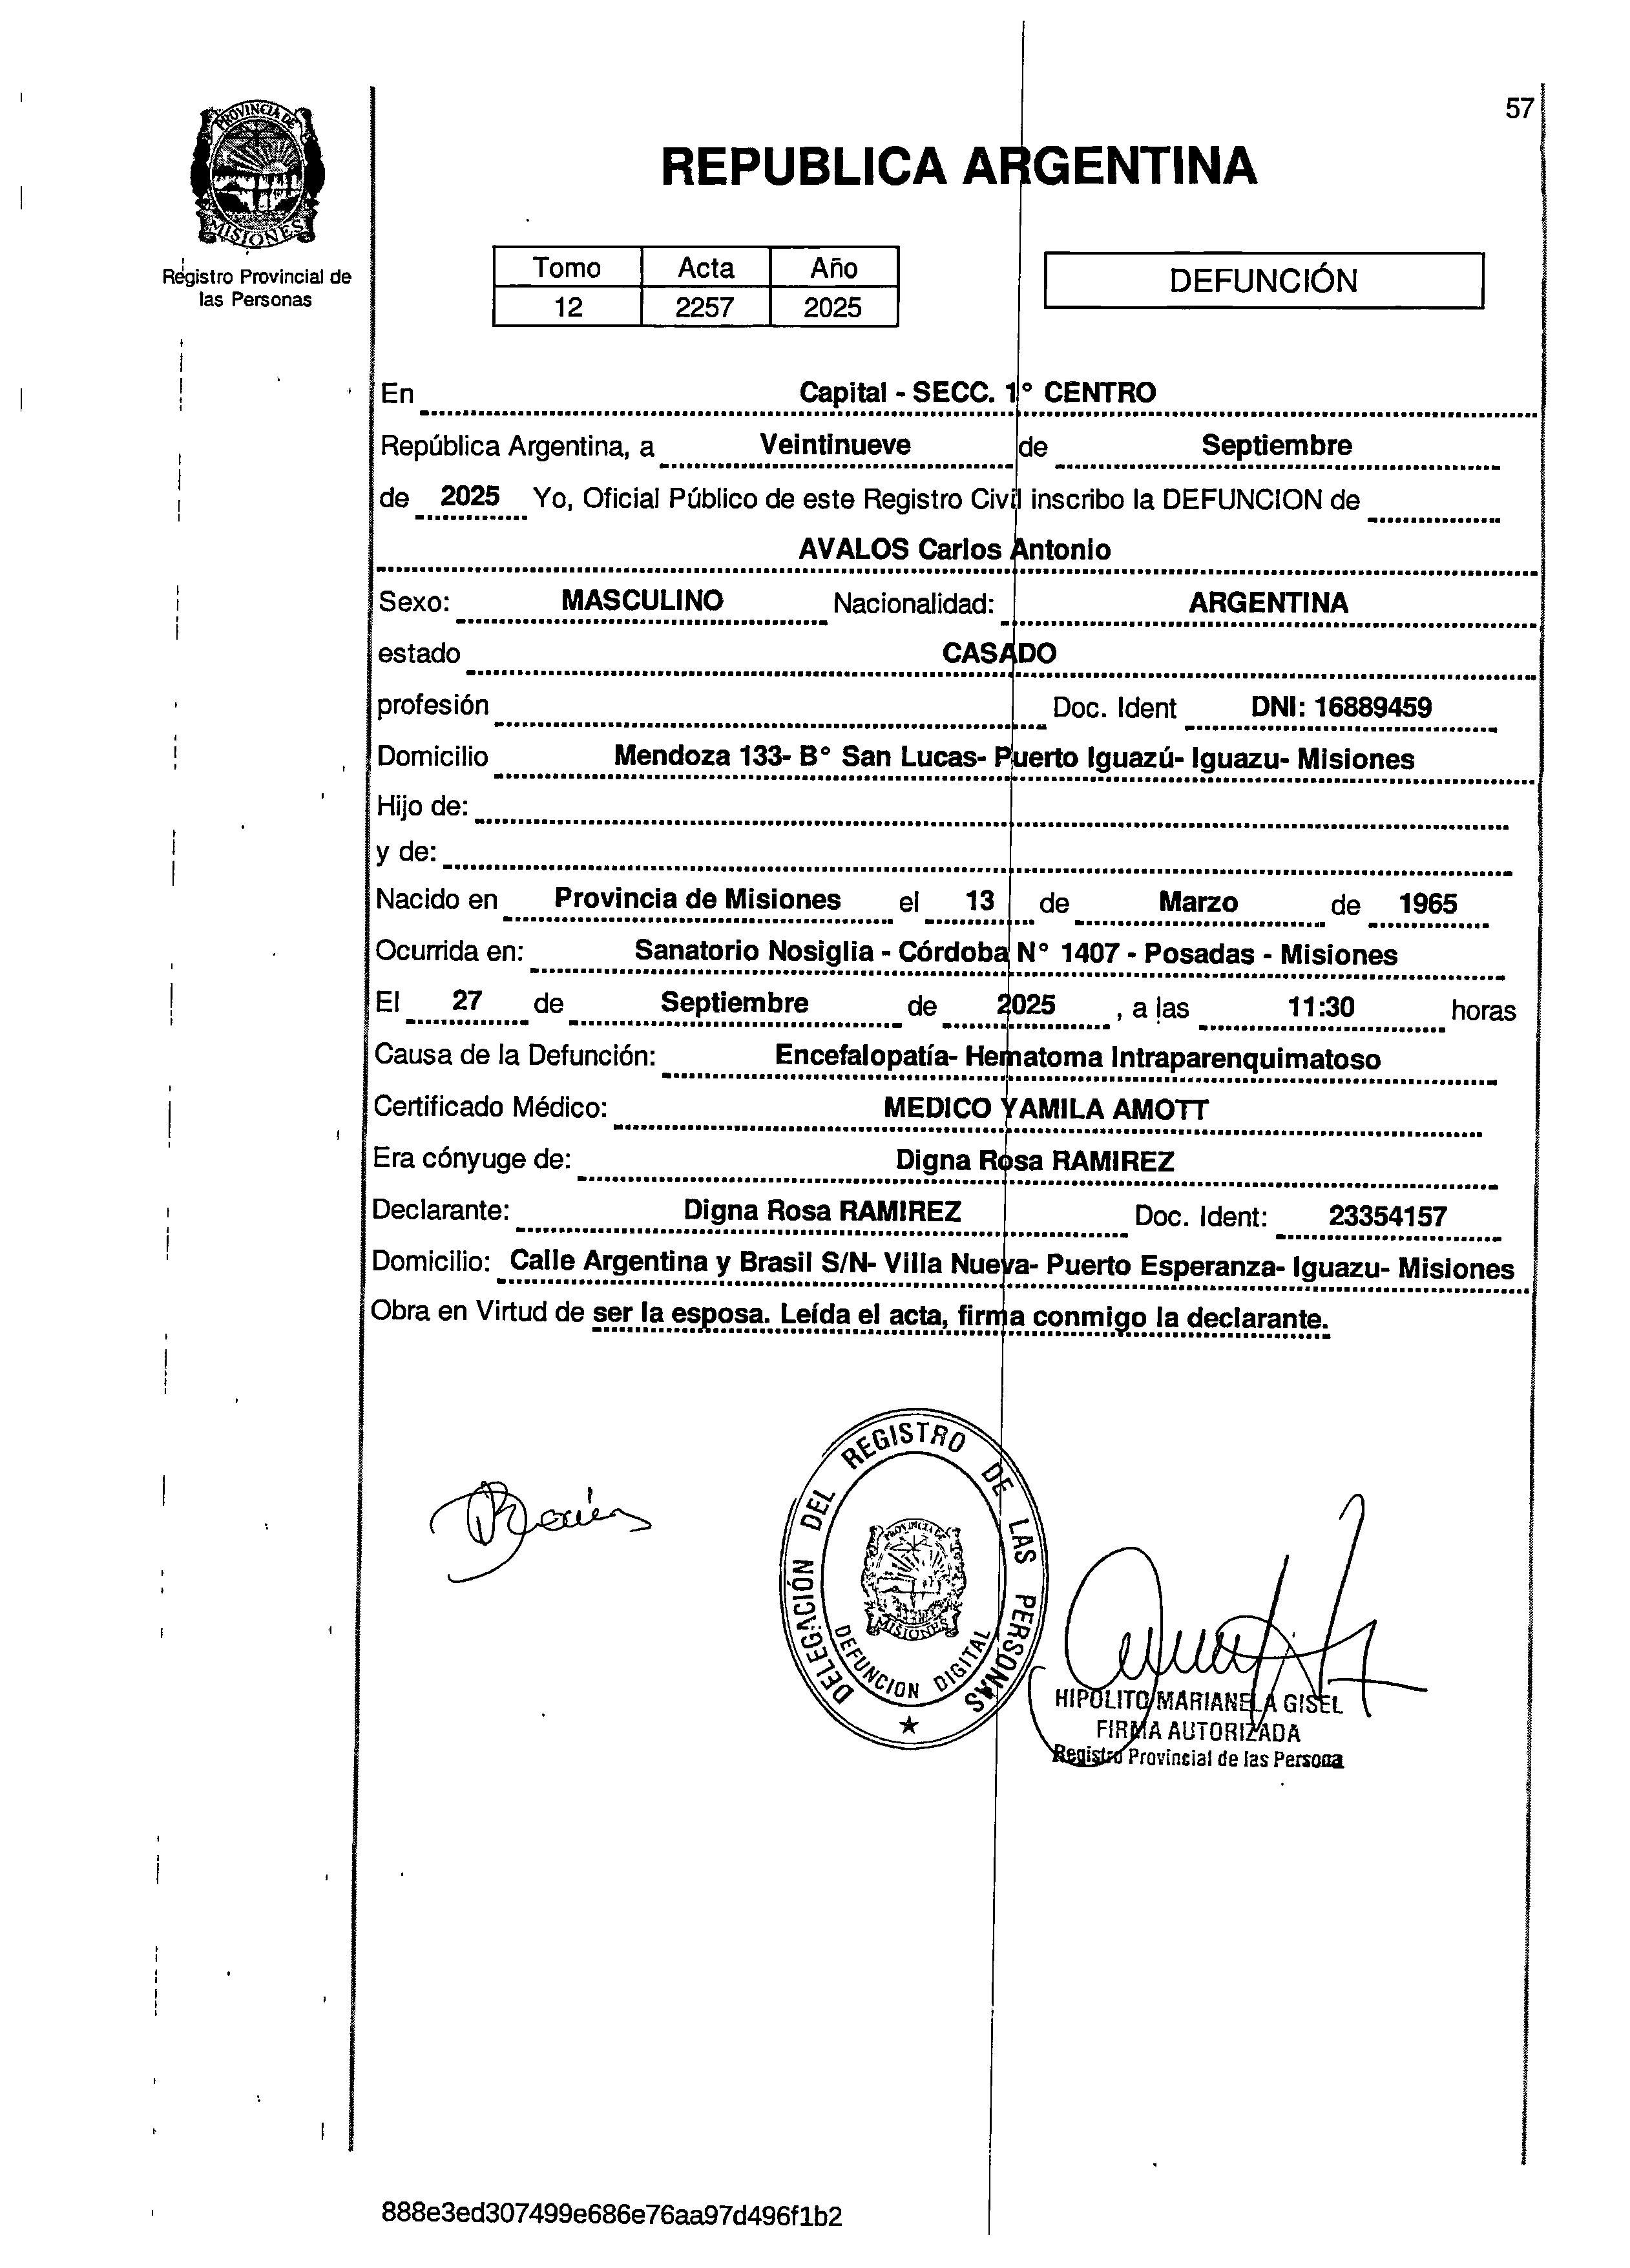 57
PROVINCIA DE
MISIONES
Registro Provincial de
las Personas
REPUBLICA ARGENTINA
Tomo Acta Año
12 2257 2025
DEFUNCIÓN
En Capital - SECC. 1° CENTRO
República Argentina, a Veintinueve de Septiembre
de 2025 Yo, Oficial Público de este Registro Civil inscribo la DEFUNCION de
AVALOS Carlos Antonio
Sexo: MASCULINO Nacionalidad: ARGENTINA
estado CASADO
profesión Doc. Ident DNI: 16889459
Domicilio Mendoza 133- B° San Lucas- Puerto Iguazú- Iguazu- Misiones
Hijo de:
y de:
Nacido en Provincia de Misiones el 13 de Marzo de 1965
Ocurrida en: Sanatorio Nosiglia - Córdoba N° 1407 - Posadas - Misiones
El 27 de Septiembre de 2025 , a las 11:30 horas
Causa de la Defunción: Encefalopatía- Hematoma Intraparenquimatoso
Certificado Médico: MEDICO YAMILA AMOTT
Era cónyuge de: Digna Rosa RAMIREZ
Declarante: Digna Rosa RAMIREZ Doc. Ident: 23354157
Domicilio: Calle Argentina y Brasil S/N- Villa Nueva- Puerto Esperanza- Iguazu- Misiones
Obra en Virtud de ser la esposa. Leída el acta, firma conmigo la declarante.
DELEGACIÓN DEL REGISTRO DE LAS PERSONAS
PROVINCIA DE
MISIONES
DEFUNCION DIGITAL
HIPOLITO MARIANELA GISEL
FIRMA AUTORIZADA
Registro Provincial de las Persona
888e3ed307499e686e76aa97d496f1b2